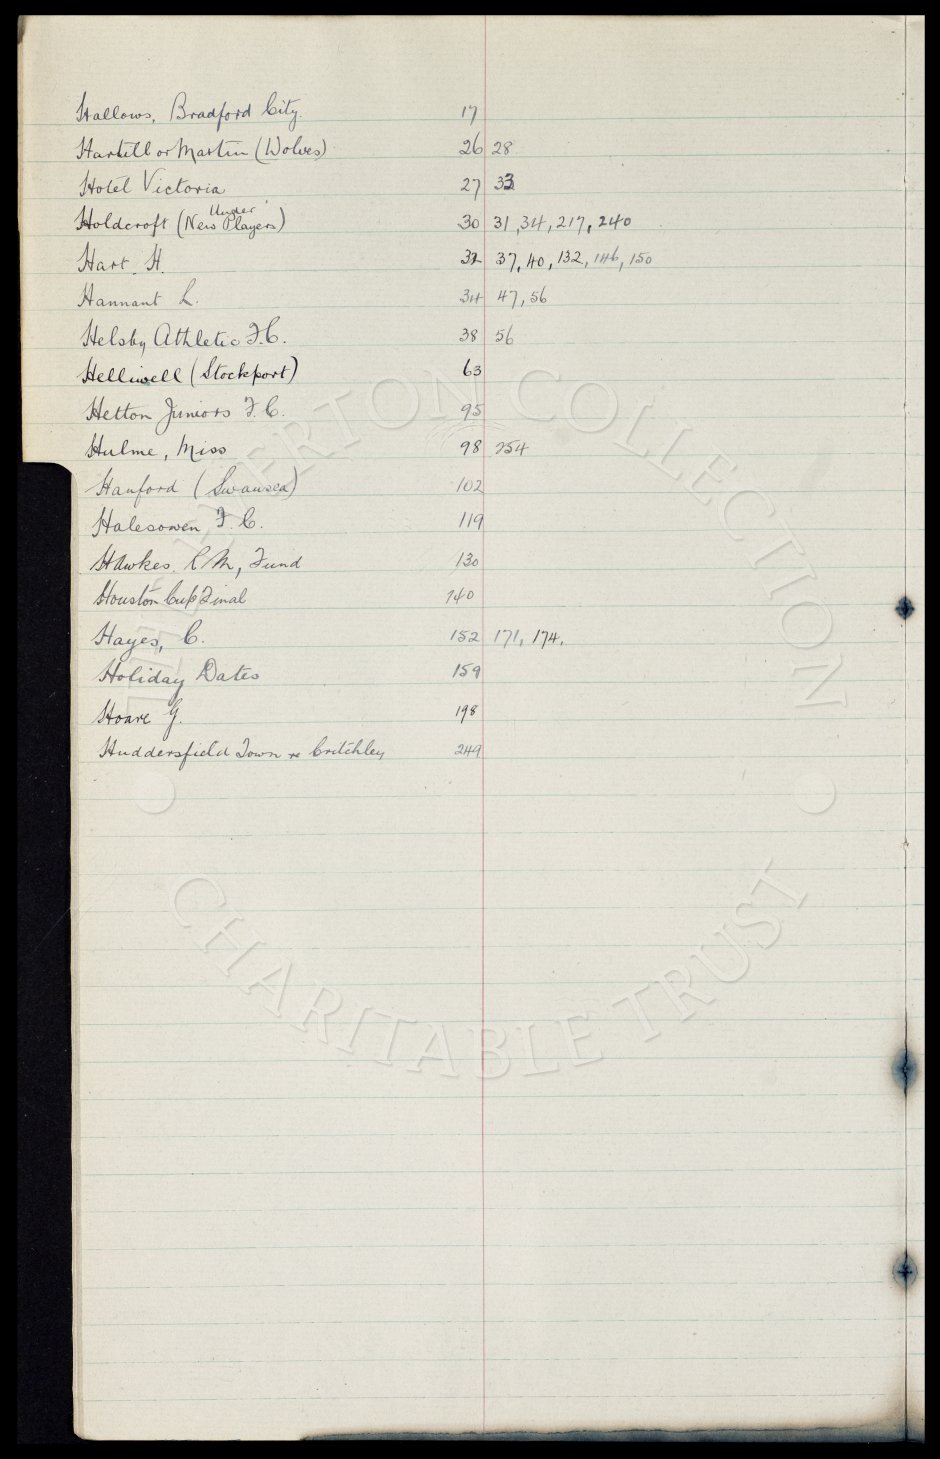 Hallows, Bradford City. 17
Hartill or Martin (Wolves) 26 28
Hotel Victoria 27 33
Holdcroft (Under New Players) 30 31, 34, 217, 240
Hart. H. 32 37, 40, 132, 146, 150
Hannant L. 34 47, 56
Helsby Athletic F.C. 38 56
Helliwell (Stockport) 63
Hetton Juniors F.C. 95
Hulme, Miss 98 254
Hanford (Swansea) 102
Halesowen F.C. 119
Hawkes. R M, Fund 130
Houston Cup Final 140
Hayes, C. 152 171, 174.
Holiday Dates 159
Hoare G. 198
Huddersfield Town re Critchley 249
THE EVERTON COLLECTION
CHARITABLE TRUST